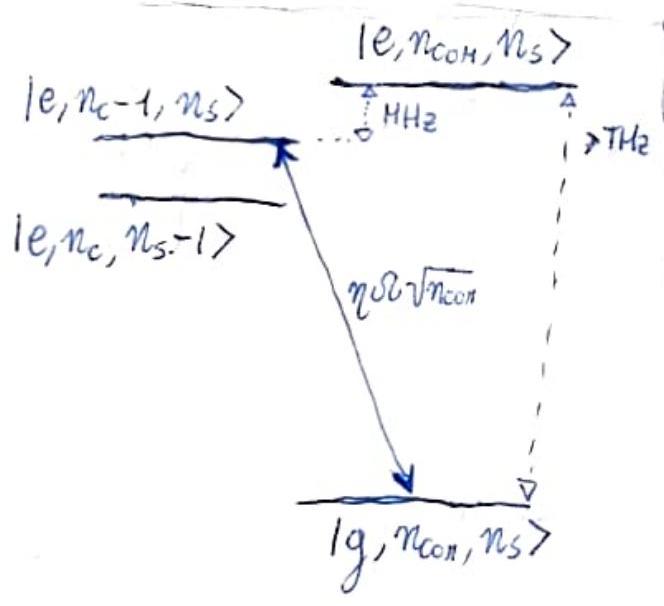 |e, n_COM, n_S>
|e, n_c-1, n_S>
MHz
>THz
|e, n_c, n_S-1>
ηΩ√n_COM
|g, n_COM, n_S>